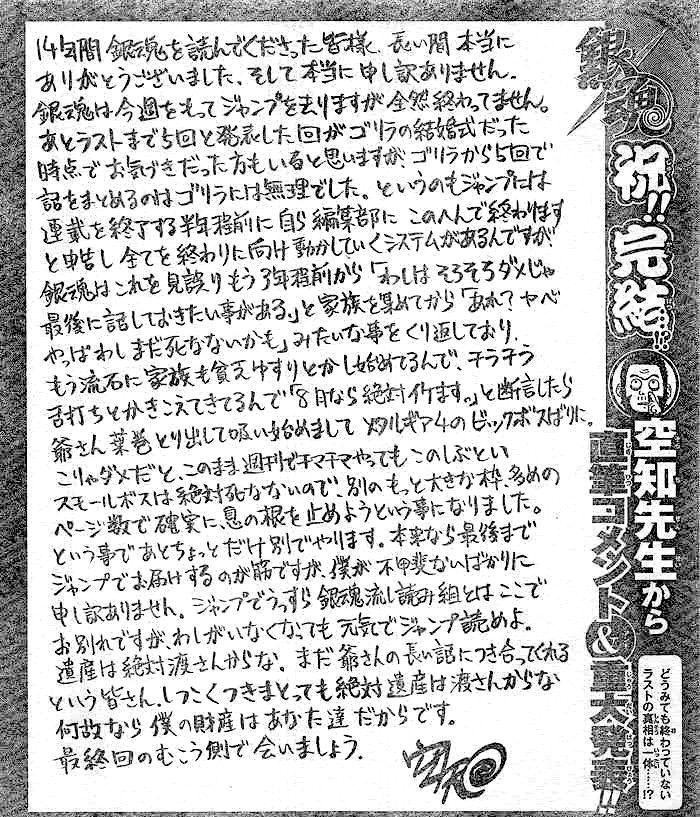 14年間 銀魂を読んでくださった皆様、長い間 本当に
ありがとうございました、そして本当に申し訳ありません。
銀魂は今週をもってジャンプを去りますが全然終わってません。
あとラストまで5回と発表した回がゴリラの結婚式だった
時点でお気づきだった方もいると思いますが、ゴリラから5回で
話をまとめるのはゴリラには無理でした。というのもジャンプには
連載を終了する半年程前に自ら編集部に このへんで終わります
と申告し全てを終わりに向け動かしていくシステムがあるんですが
銀魂はこれを見誤りもう3年程前から「わしはそろそろダメじゃ
最後に話しておきたい事がある。」と家族を集めてから「あれ?ヤベ
やっぱわしまだ死なないかも」みたいな事をくり返しており、
もう流石に家族も貧乏ゆすりとかし始めてるんで、チラチラ
舌打ちとかきこえてきてるんで「8月なら絶対イケます。」と断言したら
爺さん葉巻とり出して吸い始めまして メタルギア4のビックボスばりに。
こりゃダメだと、このまま週刊でチマチマやってもこのしぶとい
スモールボスは絶対死なないので、別のもっと大きな枠、多めの
ページ数で確実に、息の根を止めようという事になりました。
という事であとちょっとだけ別でやります。本来なら最後まで
ジャンプでお届けするのが筋ですが、僕が不甲斐ないばかりに
申し訳ありません。ジャンプでうっすら銀魂流し読み組とはここで
お別れですが、わしがいなくなっても元気でジャンプ読めよ。
遺産は絶対渡さんからな。まだ爺さんの長い話につき合ってくれる
という皆さん、しつこくつきまとっても絶対遺産は渡さんからな
何故なら僕の財産はあなた達だからです。
最終回のむこう側で会いましょう。
空知
銀魂
祝!!完結…!?
空知先生から
直筆コメント&重大発表!!
どうみても終わっていない
ラストの真相は一体……!?